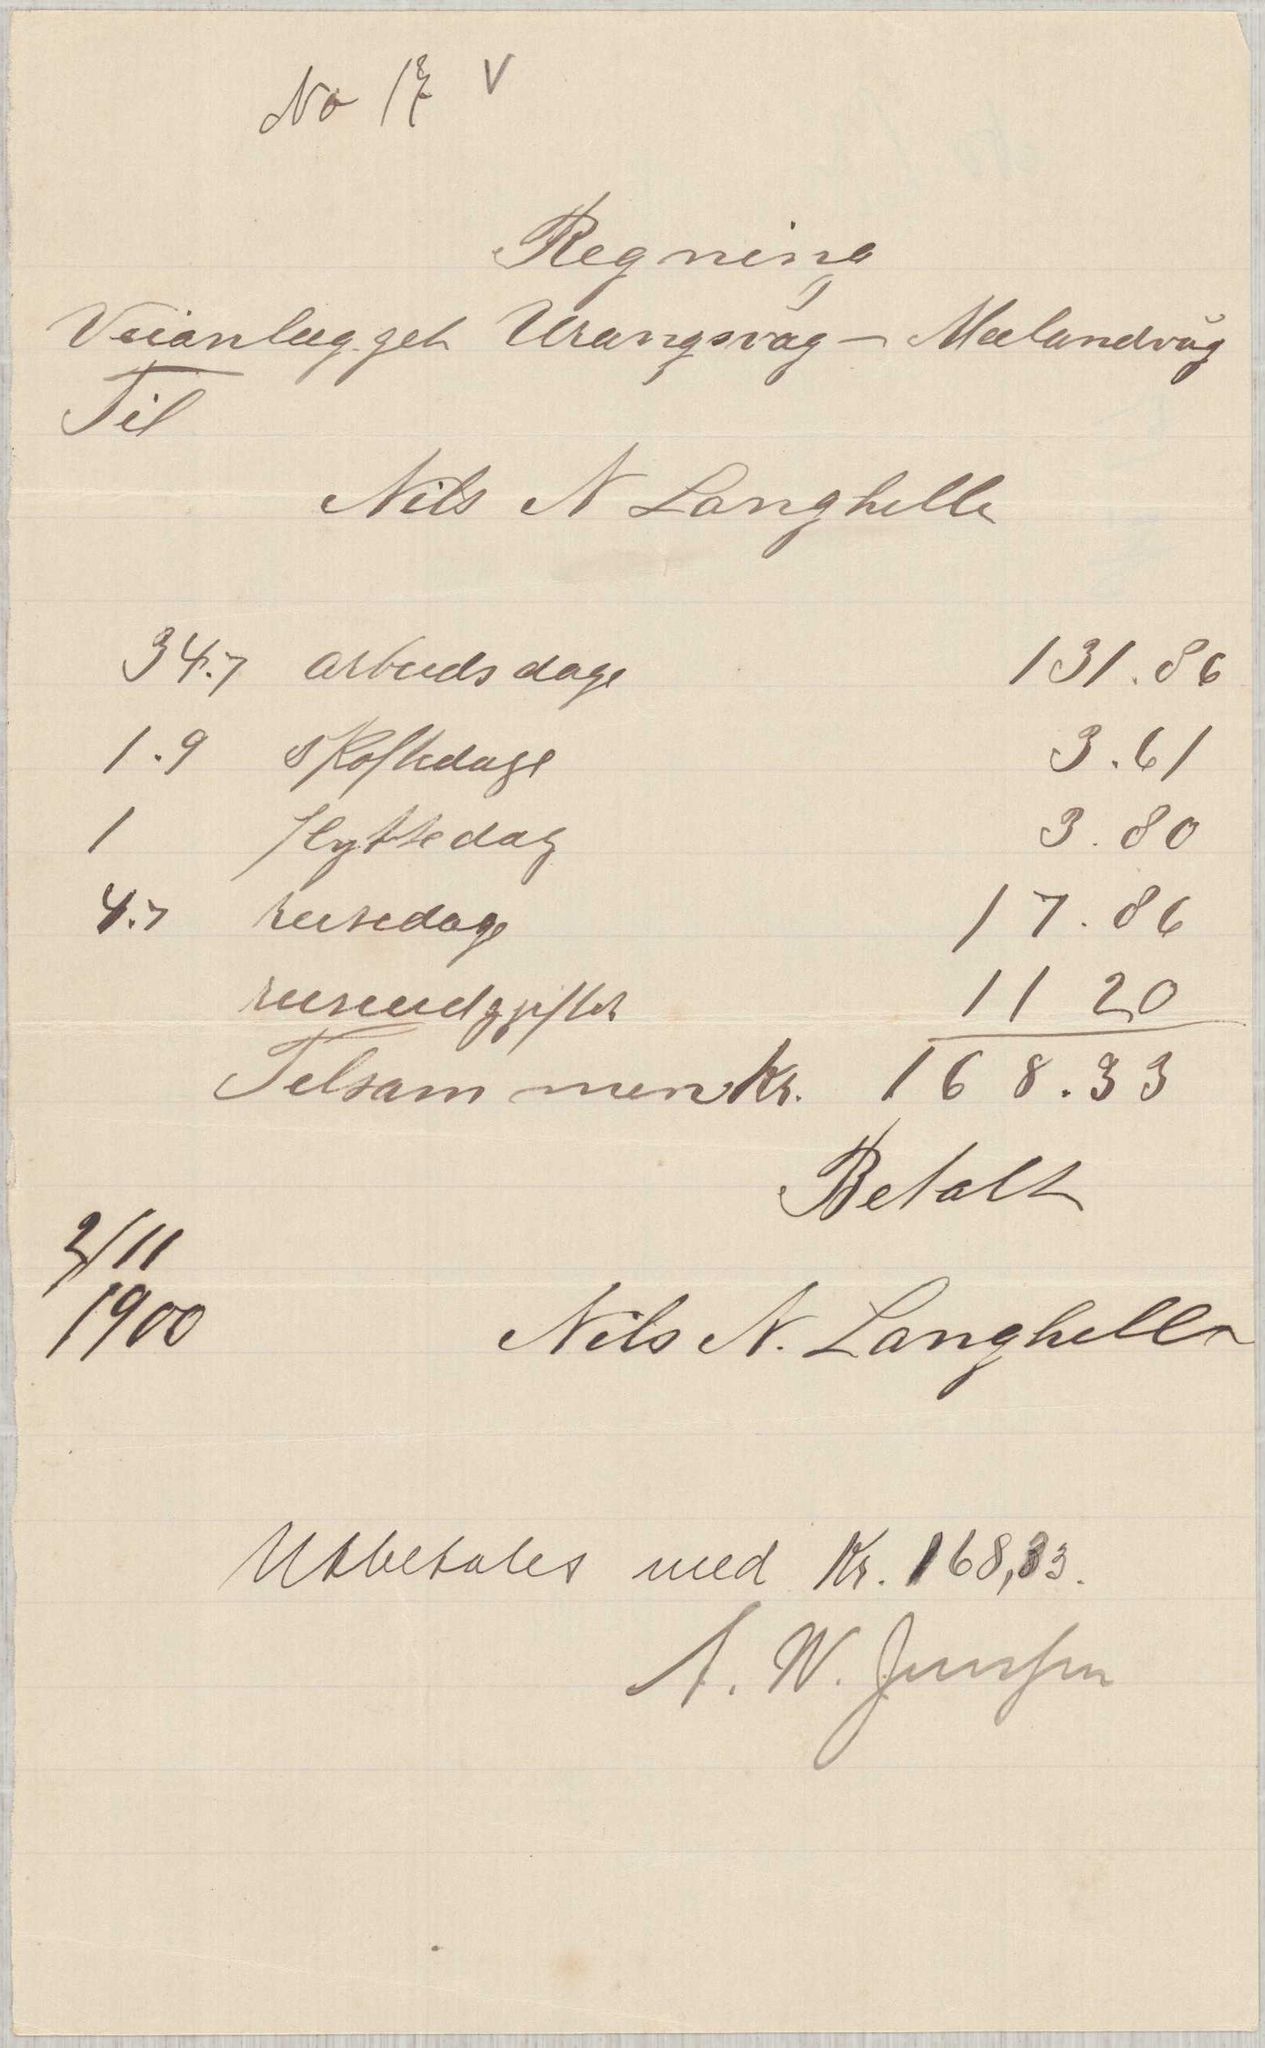 No 18 V
Regning
Veianlægget Urangsvåg - Mælandvåg
Til
Nils N Langhelle
34.7 arbeidsdage 131.86
1.9 skoftedage 3.61
1 flyttedag 3.80
4.7 reisedage 17.86
reiseudgifter 11 20
Telsammen Kr. 168.33
Betalt
2/11
1900
Nils N. Langhelle
Utbetales med Kr. 168,33.
A. W. Jenssen